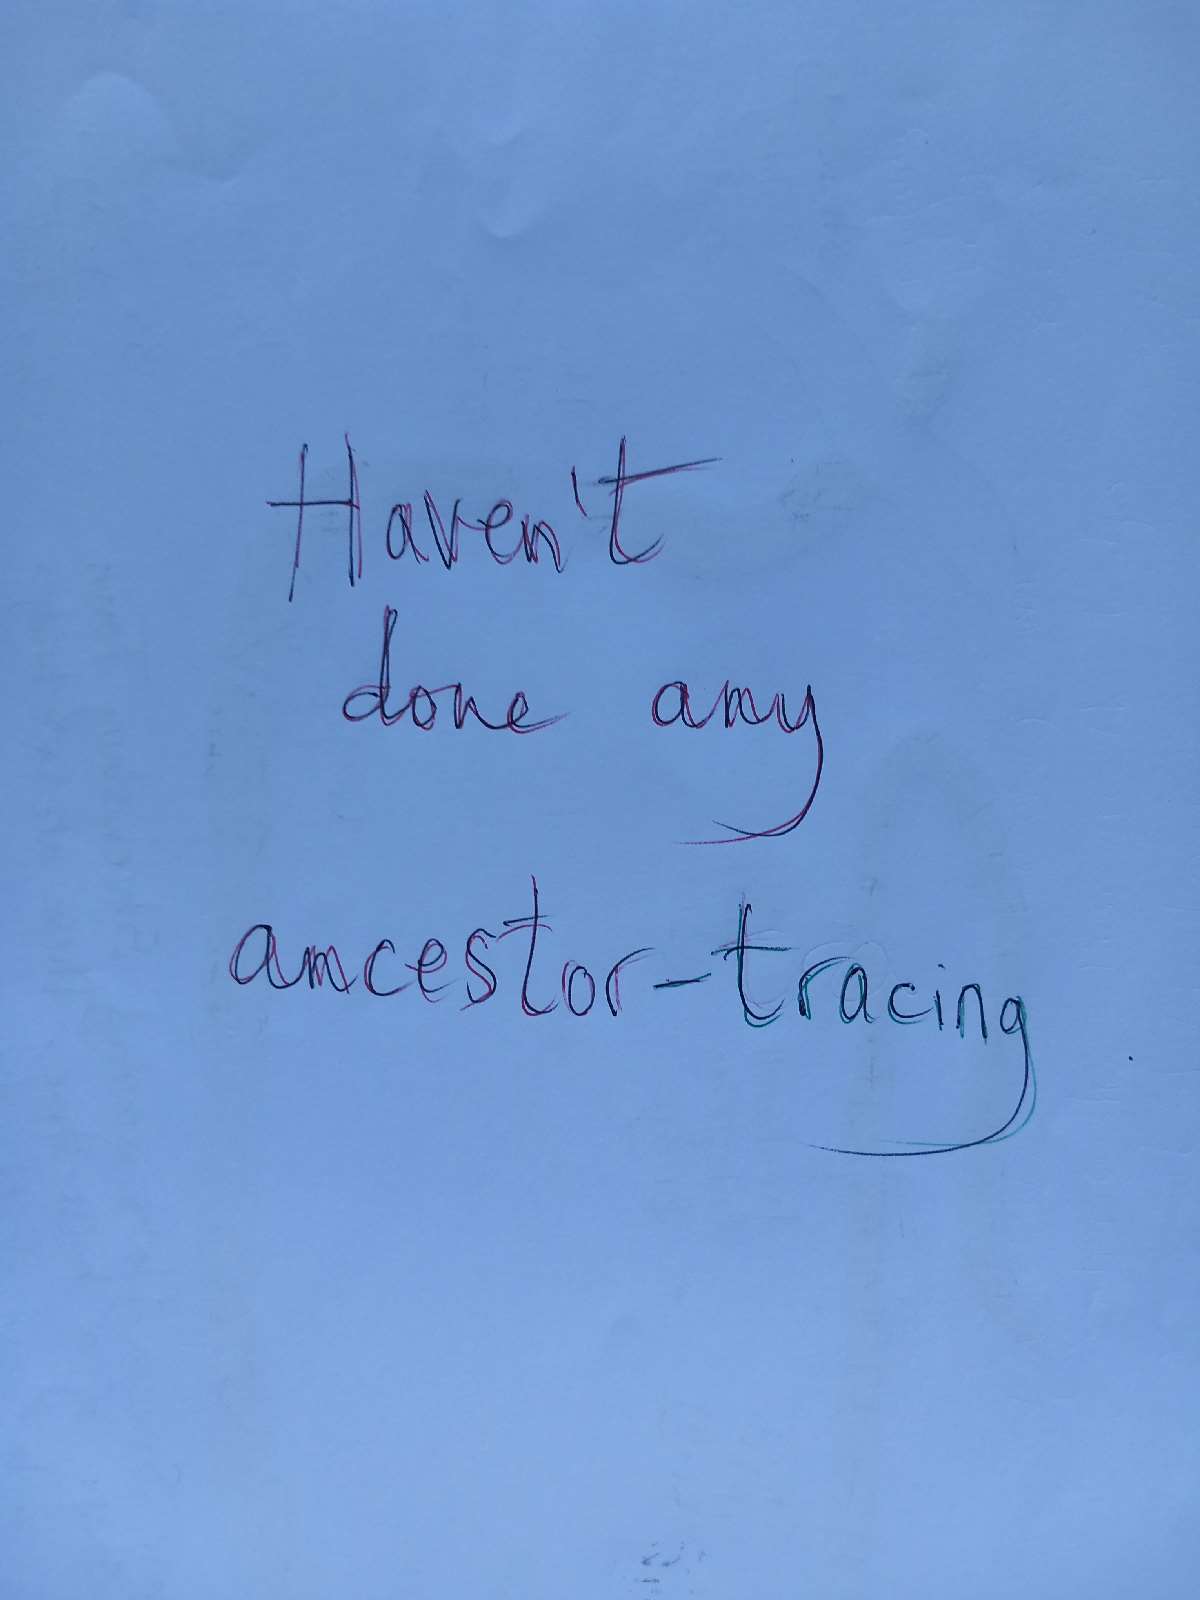 Haven't
done any
ancestor-tracing